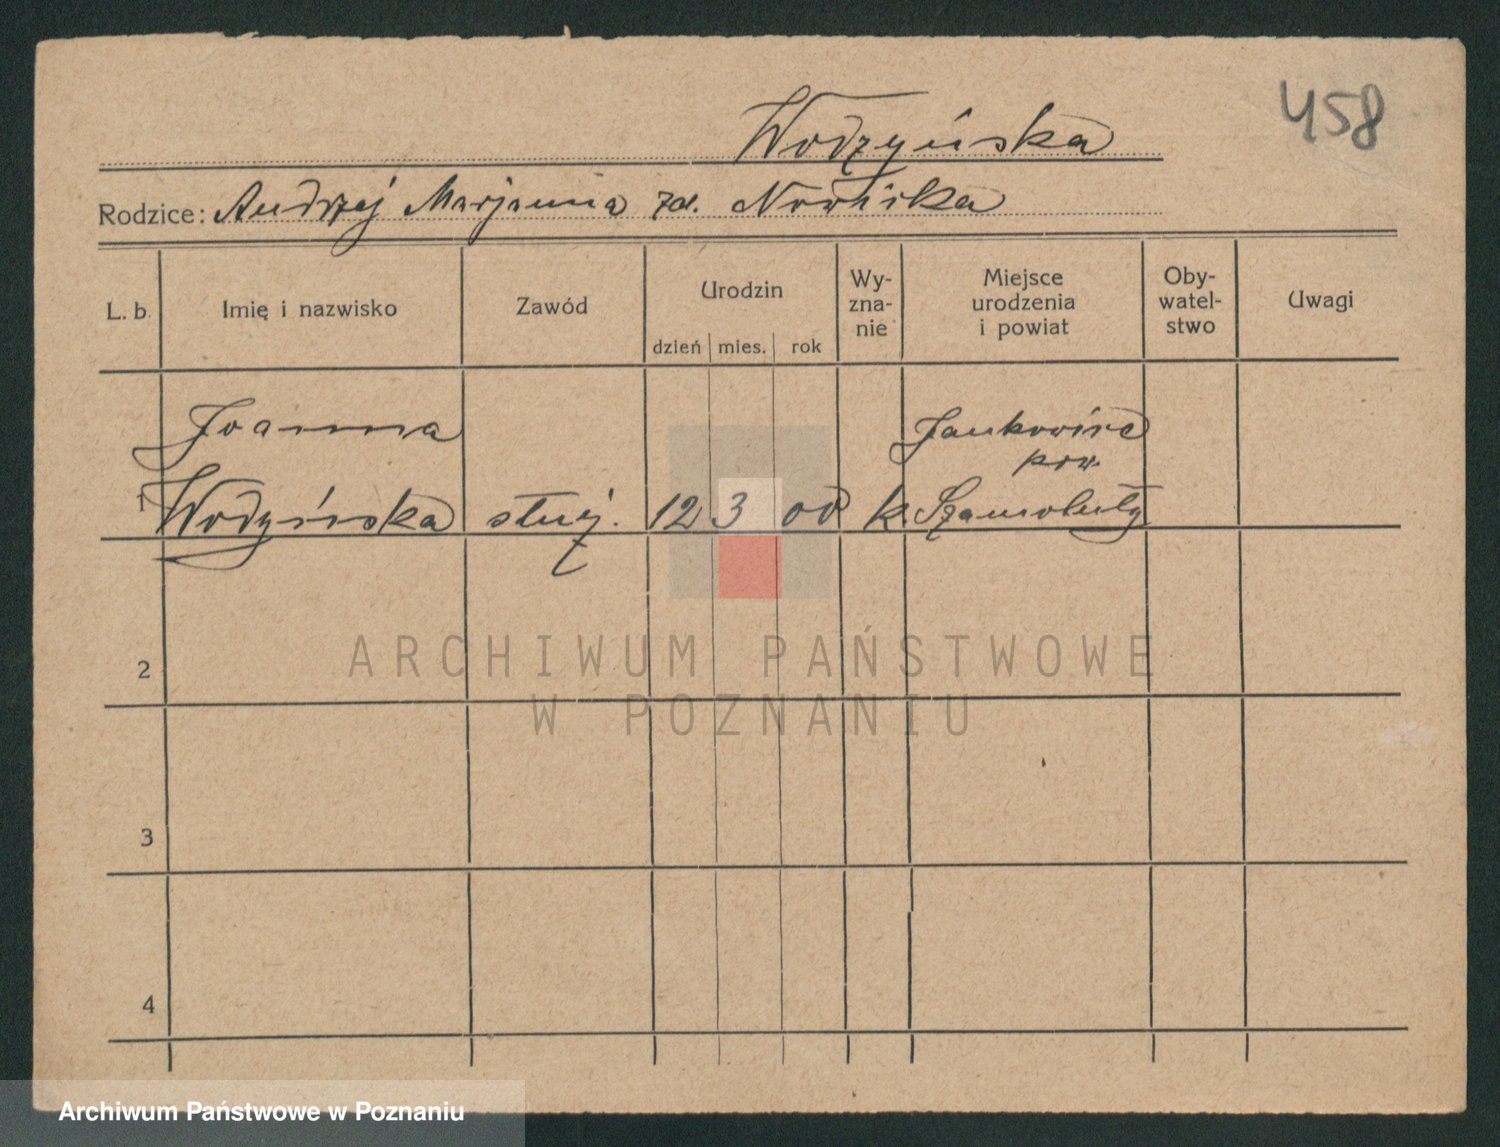 458
Wodzyńska
Rodzice: Andrzej Marjanna zd. Nowicka
L. b. Imię i nazwisko Zawód Urodzin Wy-zna-nie Miejsce urodzenia i powiat Oby-watel-stwo Uwagi
dzień mies. rok
Joanna Jankowice
pow.
1 Wodzyńska służ. 12 3 00 k. Szamotuły
2
ARCHIWUM PAŃSTWOWE
W POZNANIU
3
4
Archiwum Państwowe w Poznaniu